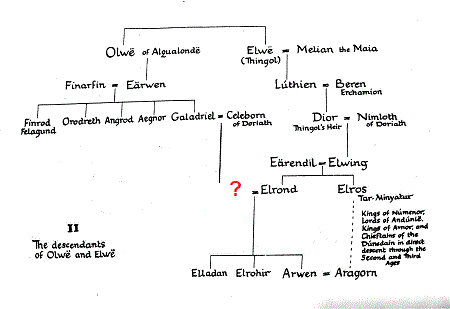 Olwë of Alqualondë
Elwë = Melian the Maia
(Thingol)
Finarfin = Eärwen
Lúthien = Beren
Erchamion
Finrod
Felagund
Orodreth Angrod Aegnor Galadriel = Celeborn
of Doriath
Dior = Nimloth
Thingol's Heir
of Doriath
Eärendil = Elwing
? = Elrond
Elros
Tar-Minyatur
Kings of Númenor,
Lords of Andúnië,
Kings of Arnor, and
Chieftains of the
Dúnedain in direct
descent through the
Second and Third
Ages
II
The descendants
of Olwë and Elwë
Elladan Elrohir Arwen = Aragorn